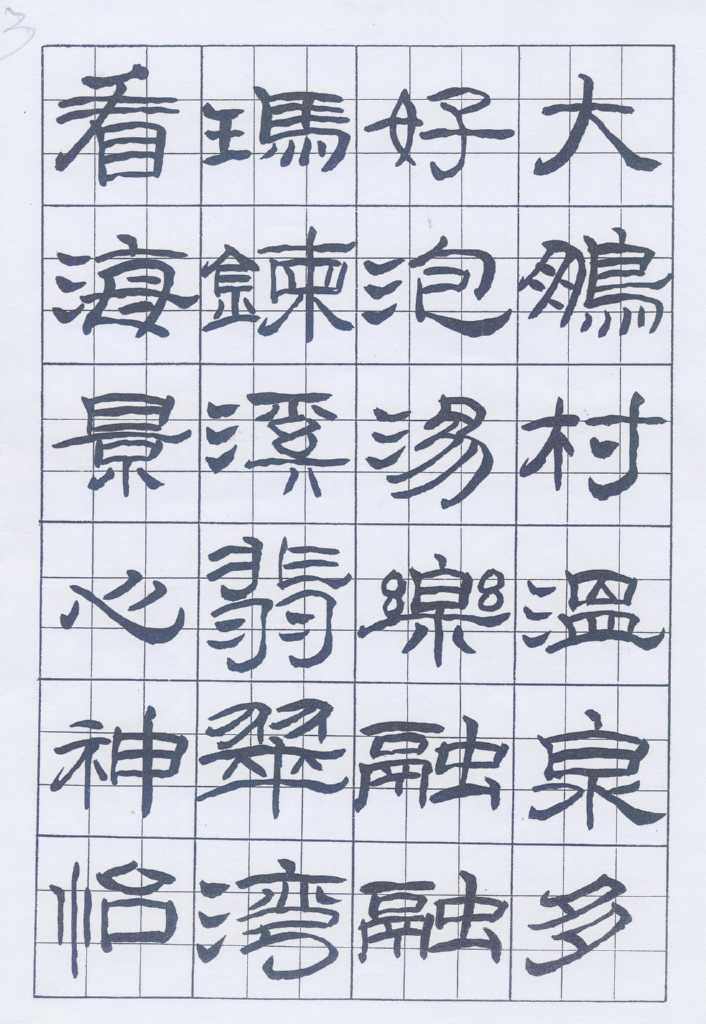 3
大鵬村溫泉多
好泡湯樂融融
瑪鍊溪翡翠湾
看海景心神怡